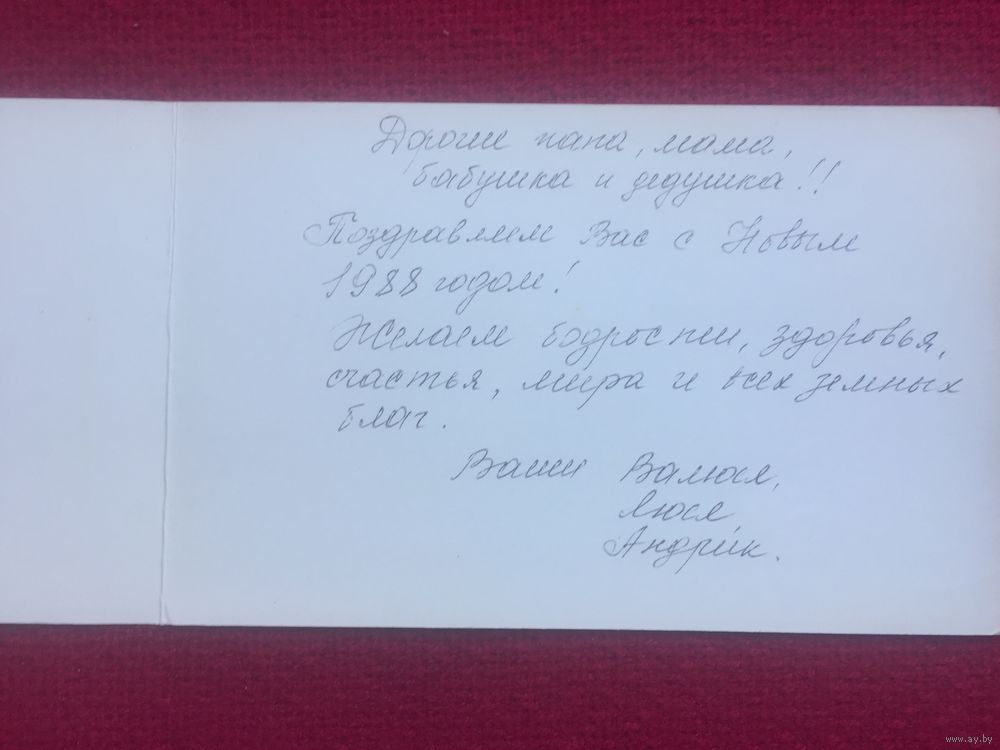 Дорогие папа, мама,
бабушка и дедушка!!
Поздравляем Вас с Новым
1988 годом!
Желаем бодрости, здоровья,
счастья, мира и всех земных
благ.
Ваши Валюся,
Люся
Андрик.
www.ay.by